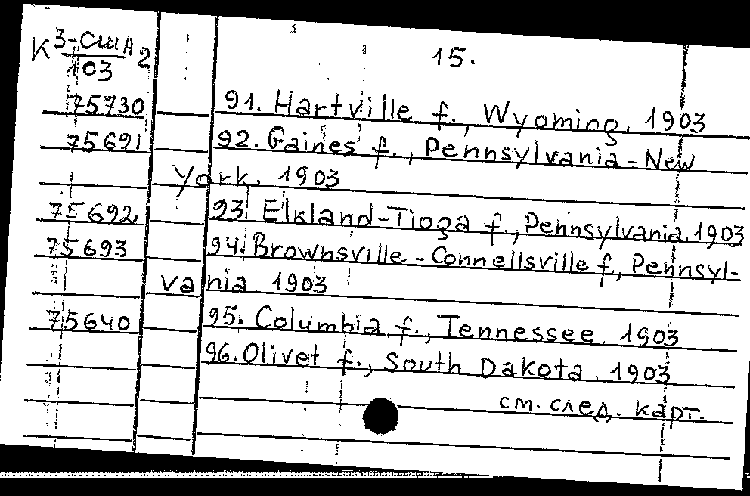 К 3-США 2 15.
103
75730 91. Hartville f., Wyoming, 1903
75691 92. Gaines f., Pennsylvania-New
York, 1903
75692 93. Elkland-Tioga f., Pennsylvania, 1903
75693 94. Brownsville-Connellsville f., Pennsyl-
vania 1903
75640 95. Columbia f., Tennessee, 1903
96. Olivet f., South Dakota, 1903
см. след. карт.